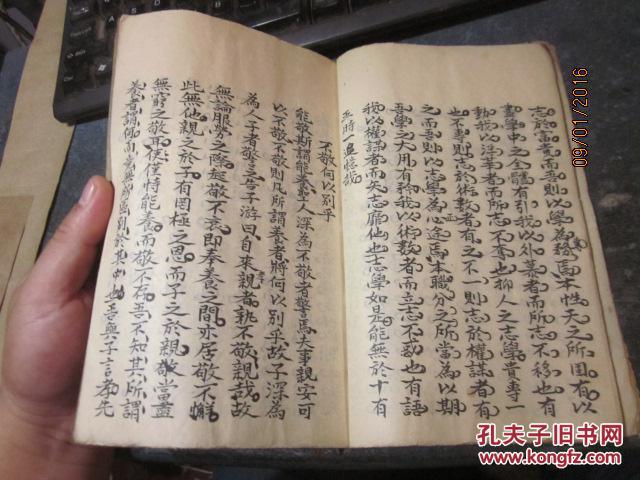 志於富貴而吾則以學為務焉本性天之所固有以
盡學中之全體有引我以外慕者而所志不移也有
動我以浮華者而所志不奪也抑人之志學貴專一
也不專則志於術數者有之不一則志於權謀者有
之而吾則以志學為心焉本職分之所當為以期
吾學之大用有称我以術數者而立志不惑也有語
我以權謀者而矢志靡他也志學如是能無於十有
五時一追憶哉
不敬何以別乎
能敬斯謂能養聖人深為不敬者警焉夫事親安可
以不敬不敬則凡所謂養者將何以別乎故子深為
為人子者警之告子游曰自來親者孰不敬親哉故
無論服勞之際起敬不衰即奉養之間亦居敬不懈
此無他親之於子有罔極之恩而子之於親敬當盡
無窮之敬耳僕僕恃能養而敬不存吾不知其所謂
養者區別於其中也吾與子言孝先
09/01/2016
孔夫子旧书网
www.kongfz.com